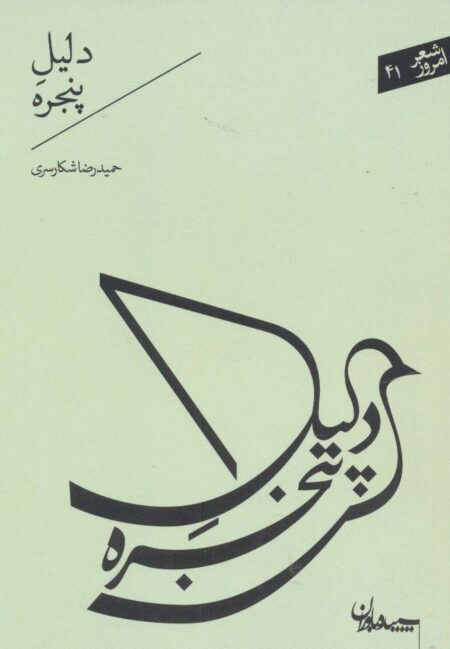 شعر
امروز ۴۱
دلیلِ
پنجره
حمیدرضا شکارسری
دلیلِ
پنجره
سپیده‌باوران